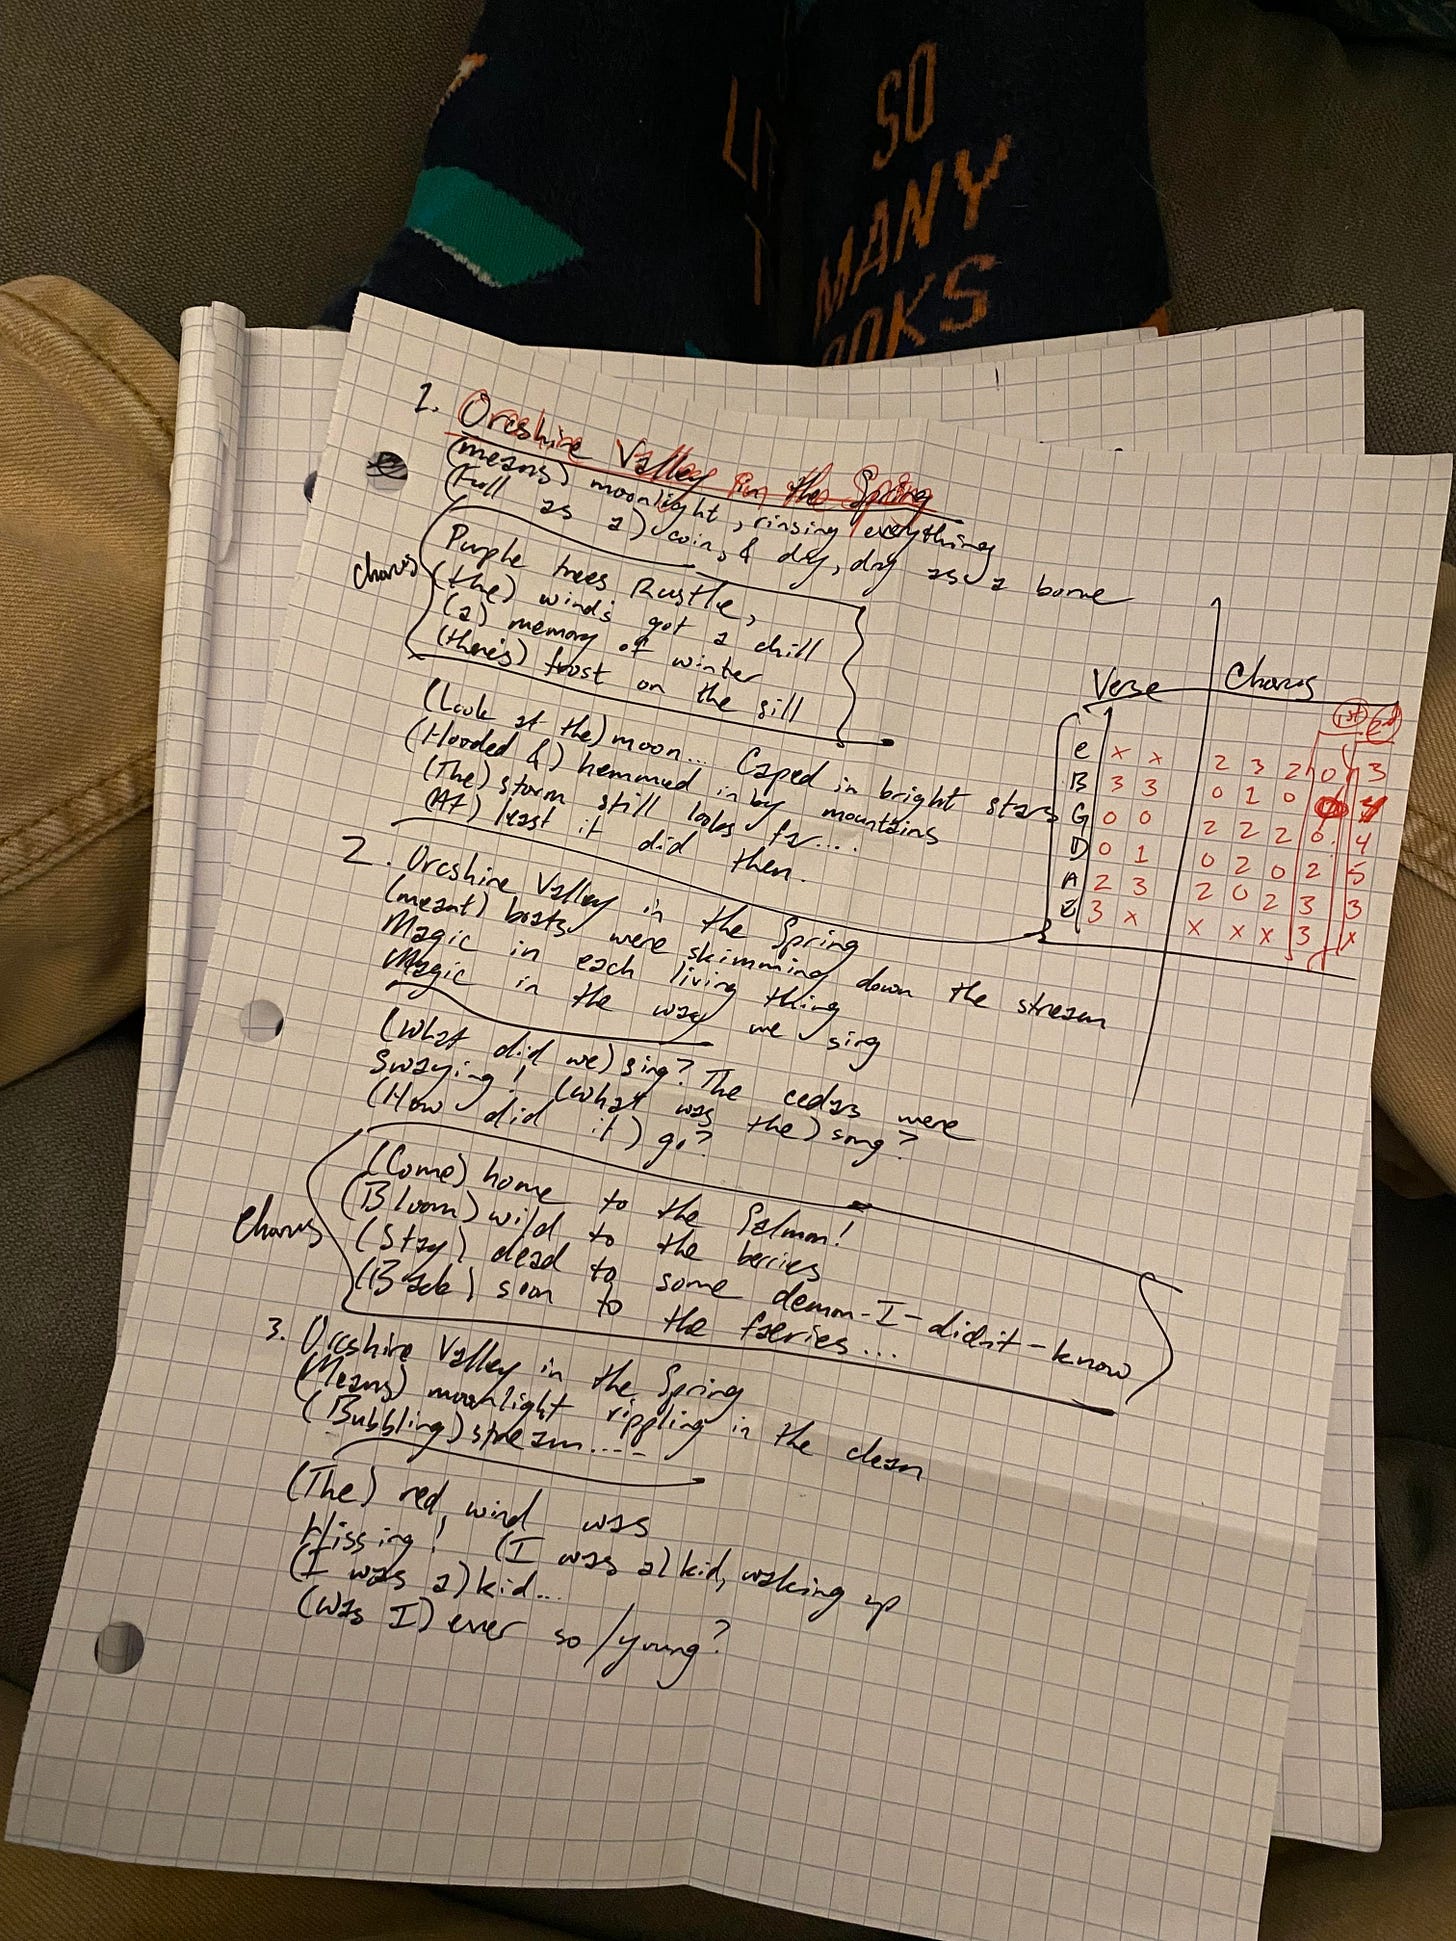 SO
MANY
OOKS
1. Orcshire Valley in the Spring
(means) moonlight, rinsing everything
(Full as a) coin, & dry, dry as a bone
Chorus
Purple trees Rustle,
(the) wind's got a chill
(a) memory of winter
(there's) frost on the sill
(Look at the) moon... Caped in bright stars
(Hooded &) hemmed in by mountains
(The) storm still looks far....
(At) least it did then.
2. Orcshire Valley in the Spring
(meant) boats were skimming down the stream
Magic in each living thing
Magic in the way we sing
(What did we) sing? The cedars were
Swaying! (What was the) song?
(How did it) go?
Chorus
(Come) home to the Salmon!
(Bloom) wild to the berries
(Stay) dead to some demon-I-didn't-know
(Back) soon to the faeries...
3. Orcshire Valley in the Spring
(Means) moonlight rippling in the clean
(Bubbling) stream....
(The) red wind was
Hissing! (I was a) kid, waking up
(I was a) kid...
(Was I) ever so/young?
Verse Chorus
1st 2nd
e x x 2 3 2 0 3
B 3 3 0 1 0
G 0 0 2 2 2 0 4
D 0 1 0 2 0 2 5
A 2 3 2 0 2 3 3
E 3 x x x x 3 x